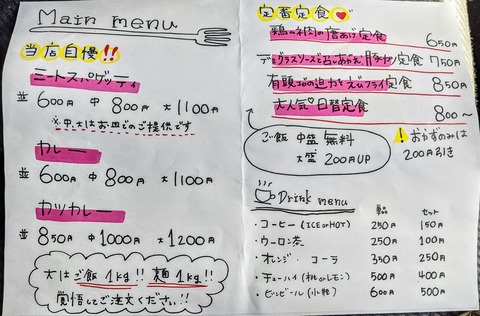 Main menu
当店自慢!!
ミートスパゲッティ
並 600円 中 800円 大 1100円
※中,大はお皿でのご提供です
カレー
並 600円 中 800円 大 1100円
カツカレー
並 850円 中 1000円 大 1200円
大は ご飯 1kg!! 麺 1kg!!
覚悟してご注文ください!!
定番定食
鶏ムネ肉の唐あげ定食 650円
デミグラスソースで 豚カツ定食 750円
有頭 の迫力 えびフライ定食 850円
大人気♡日替定食 800〜
ご飯 中盛 無料
大盛 200円UP
! おかずのみは
200円引き
Drink menu
単品 セット
・コーヒー(ICE or HOT) 250円 150円
・ウーロン茶 250円 100円
・オレンジ・コーラ 350円 250円
・チューハイ(桃 or レモン) 500円 400円
・ビンビール(小瓶) 600円 500円